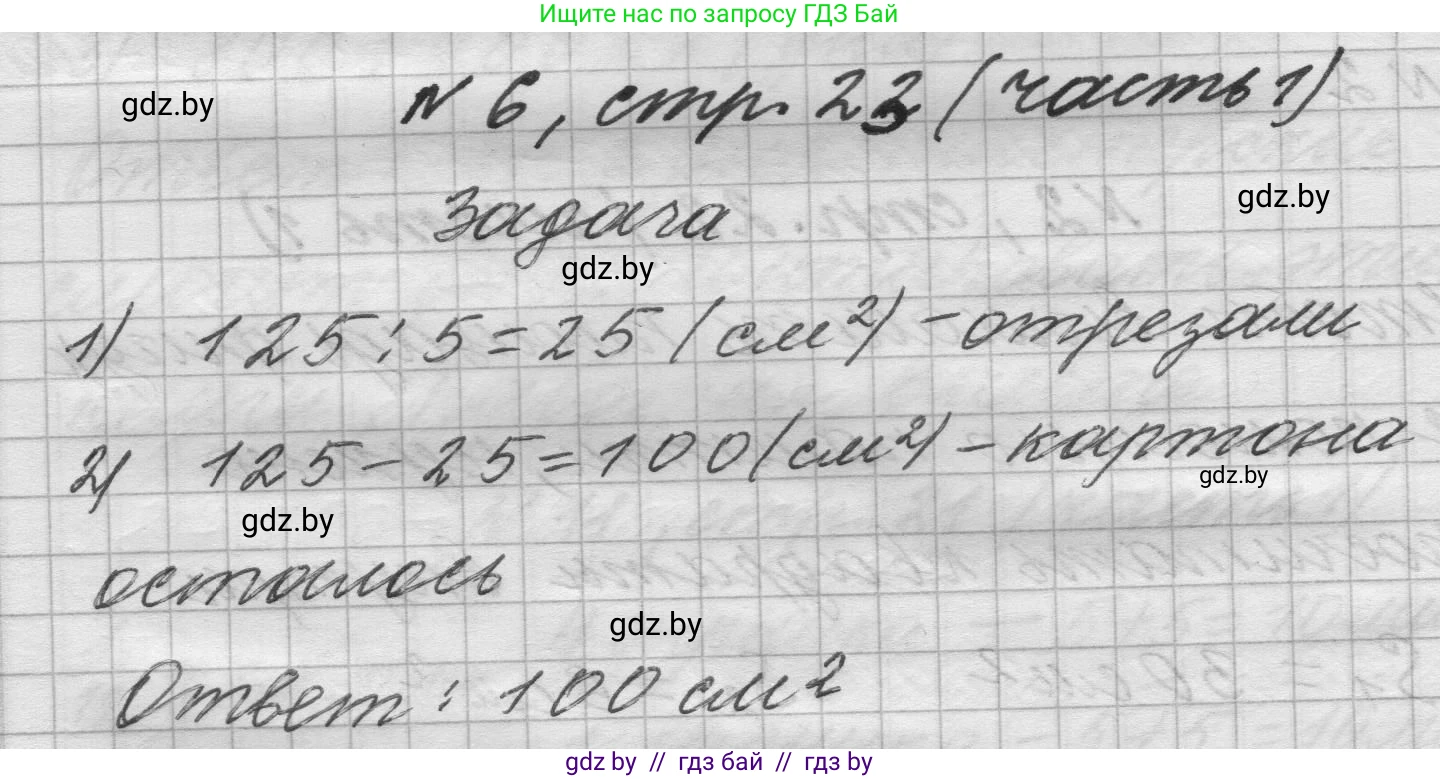 Ищите нас по запросу ГДЗ Бай
№ 6, стр. 23 (часть 1)
gdz.by
gdz.by
Задача
gdz.by
1) 125 : 5 = 25 (см²) – отрезали
2) 125 – 25 = 100 (см²) – картона
gdz.by
gdz.by
осталось
gdz.by
Ответ : 100 см²
gdz.by // гдз бай // гдз by